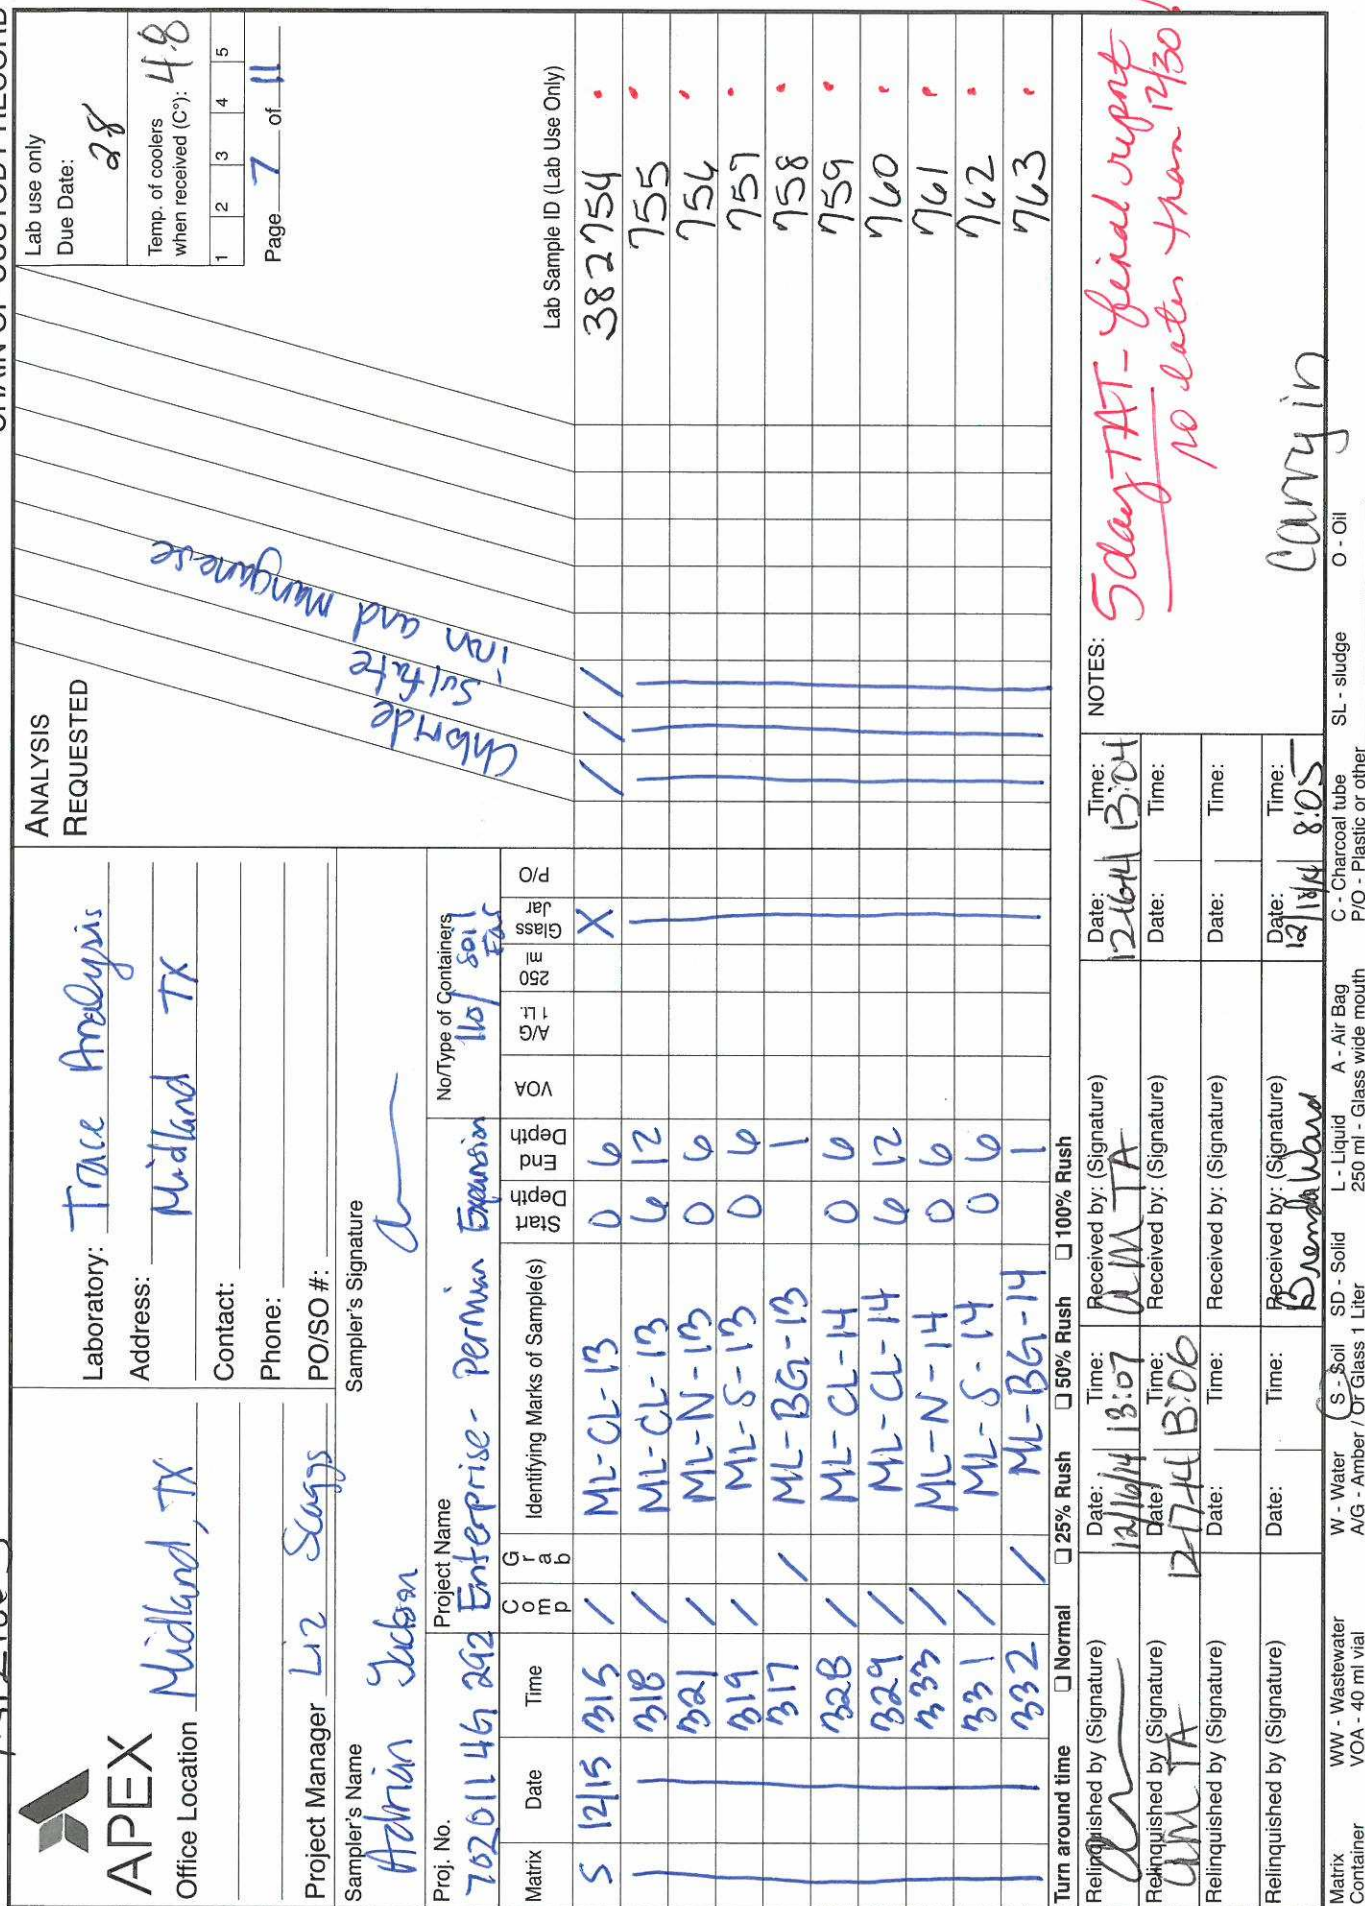 CHAIN OF CUSTODY RECORD
APEX
Office Location Midland, TX
Project Manager Liz Scaggs
Laboratory: Trace Analysis
Address: Midland TX
Contact:
Phone:
PO/SO #:
ANALYSIS
REQUESTED
Chloride
Sulfate
iron and manganese
Lab use only
Due Date:
28
Temp. of coolers
when received (C°): 4.8
1 2 3 4 5
Page 7 of 11
Sampler's Name
Adrian Jackson
Sampler's Signature
Proj. No.
Project Name
No/Type of Containers
Enterprise - Permian Expansion
Matrix Date Time Comp Grab Identifying Marks of Sample(s) Start Depth End Depth VOA A/G 1 Lt. 250 ml Glass Jar P/O Lab Sample ID (Lab Use Only)
S 12/15 315 / ML-CL-13 0 6 X / / / 382754
318 / ML-CL-13 6 12 755
321 / ML-N-13 0 6 756
319 / ML-S-13 0 6 757
317 / ML-BG-13 1 758
328 / ML-CL-14 0 6 759
329 / ML-CL-14 6 12 760
333 / ML-N-14 0 6 761
331 / ML-S-14 0 6 762
332 / ML-BG-14 1 763
Turn around time ☐ Normal ☐ 25% Rush ☐ 50% Rush ☐ 100% Rush
Relinquished by (Signature) Date: 12/16/14 Time: 13:07 Received by: (Signature) AM TA Date: 12-16-14 Time: 13:04
Relinquished by (Signature) AM TA Date: 12-17-14 Time: 13:06 Received by: (Signature) Date: Time:
Relinquished by (Signature) Date: Time: Received by: (Signature) Date: Time:
Relinquished by (Signature) Date: Time: Received by: (Signature) Brenda Ward Date: 12/18/14 Time: 8:05
NOTES: 5day TAT - final report
no later than 12/30!
Carry in
Matrix WW - Wastewater W - Water S - Soil SD - Solid L - Liquid A - Air Bag C - Charcoal tube SL - sludge O - Oil
Container VOA - 40 ml vial A/G - Amber / Or Glass 1 Liter 250 ml - Glass wide mouth P/O - Plastic or other